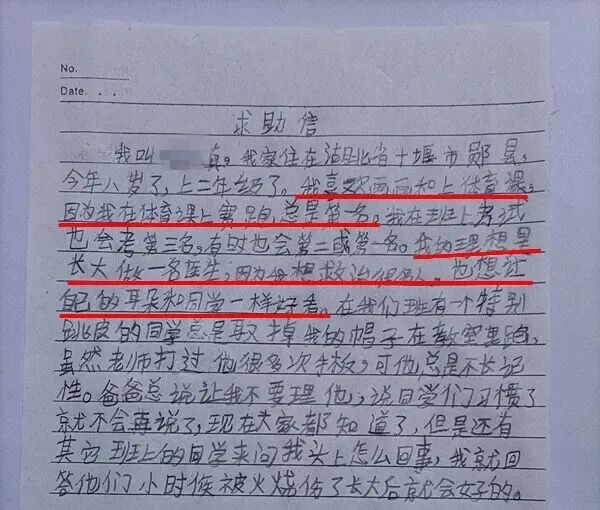 No.
Date. . .
求助信
我叫 真。我家住在湖北省十堰市郧县,
今年八岁了,上二年级了。我喜欢画画和上体育课,
因为我在体育课上赛跑总是第一名。我在班上考试
也会考第三名,有时也会第二或第一名。我的理想是
长大做一名医生,因为我想救治很多人。也想让
自己的耳朵和同学一样好看。在我们班有一个特别
跳皮的同学总是取掉我的帽子在教室里跑,
虽然老师打过他很多次手板,可他总是不长记
性。爸爸总说让我不要理他,说同学们习惯了
就不会再说了,现在大家都知道了,但是还有
其它班上的同学来问我头上怎么回事,我就回
答他们小时候被火烧伤了长大后就会好的。